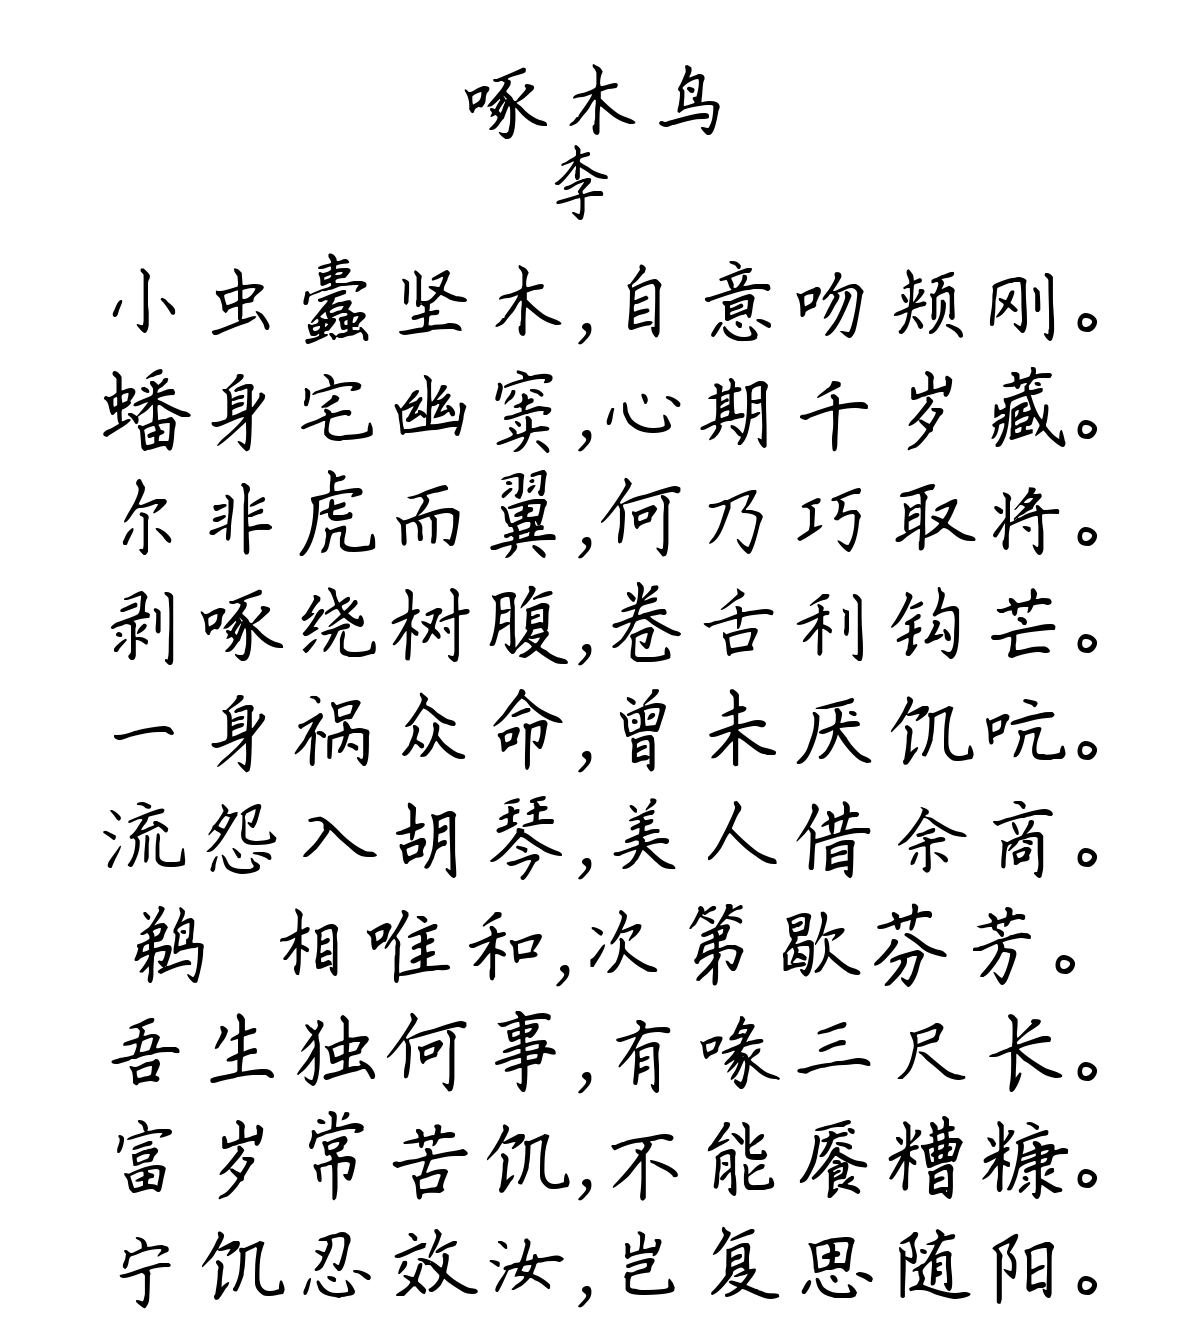 啄木鸟
李
小虫蠹坚木,自意吻颊刚。
蟠身宅幽窦,心期千岁藏。
尔非虎而翼,何乃巧取将。
剥啄绕树腹,卷舌利钩芒。
一身祸众命,曾未厌饥吭。
流怨入胡琴,美人借余商。
鹈 相唯和,次第歇芬芳。
吾生独何事,有喙三尺长。
富岁常苦饥,不能餍糟糠。
宁饥忍效汝,岂复思随阳。